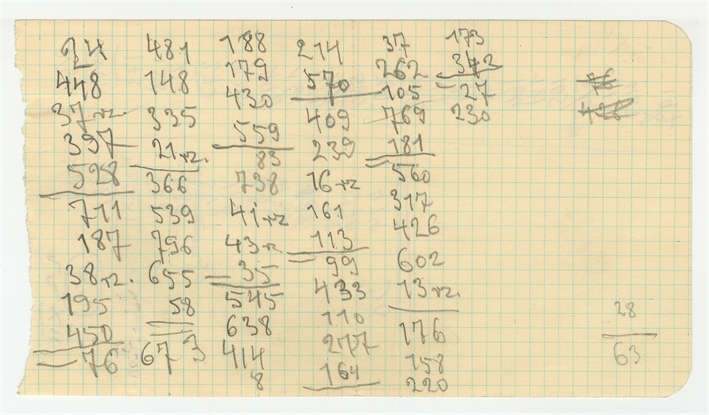 24
448
37+2.
397
528
711
187
38+2.
195
450
76
481
148
335
21+2.
366
539
796
655
58
673
188
179
430
559
83
738
41+2
43+2
35
545
638
414
8
214
570
409
239
16+2
161
113
99
433
110
277
164
37
262
105
769
181
560
317
426
602
13+2.
176
158
220
173
372
27
230
28
63